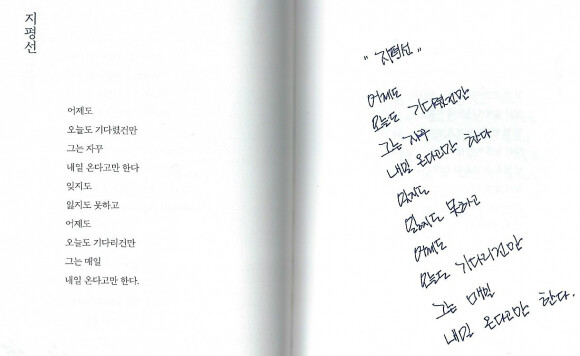 지평선
어제도
오늘도 기다렸건만
그는 자꾸
내일 온다고만 한다
잊지도
잃지도 못하고
어제도
오늘도 기다리건만
그는 매일
내일 온다고만 한다.
"지평선"
어제도
오늘도 기다렸건만
그는 자꾸
내일 온다고만 한다
잊지도
잃지도 못하고
어제도
오늘도 기다리건만
그는 매일
내일 온다고만 한다.